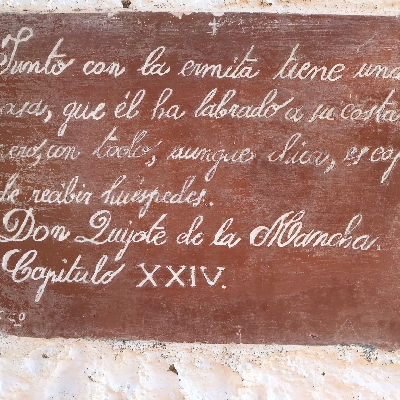 Junto con la ermita tiene una
que él ha labrado a su costa
con todo, aunque chica, es
de recibir huéspedes.
Don Quijote de la Mancha.
Capitulo XXIV.